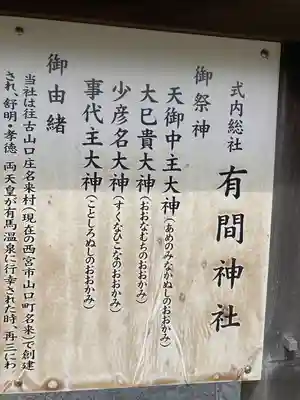 式内総社
有間神社
御祭神
天御中主大神(あめのみなかぬしのおおかみ)
大巳貴大神(おおなむちのおおかみ)
少彦名大神(すくなひこなのおおかみ)
事代主大神(ことしろぬしのおおかみ)
御由緒
当社は往古山口庄名来村(現在の西宮市山口町名来)で創建
され、舒明・孝徳 両天皇が有馬温泉に行幸された時、再三にわ